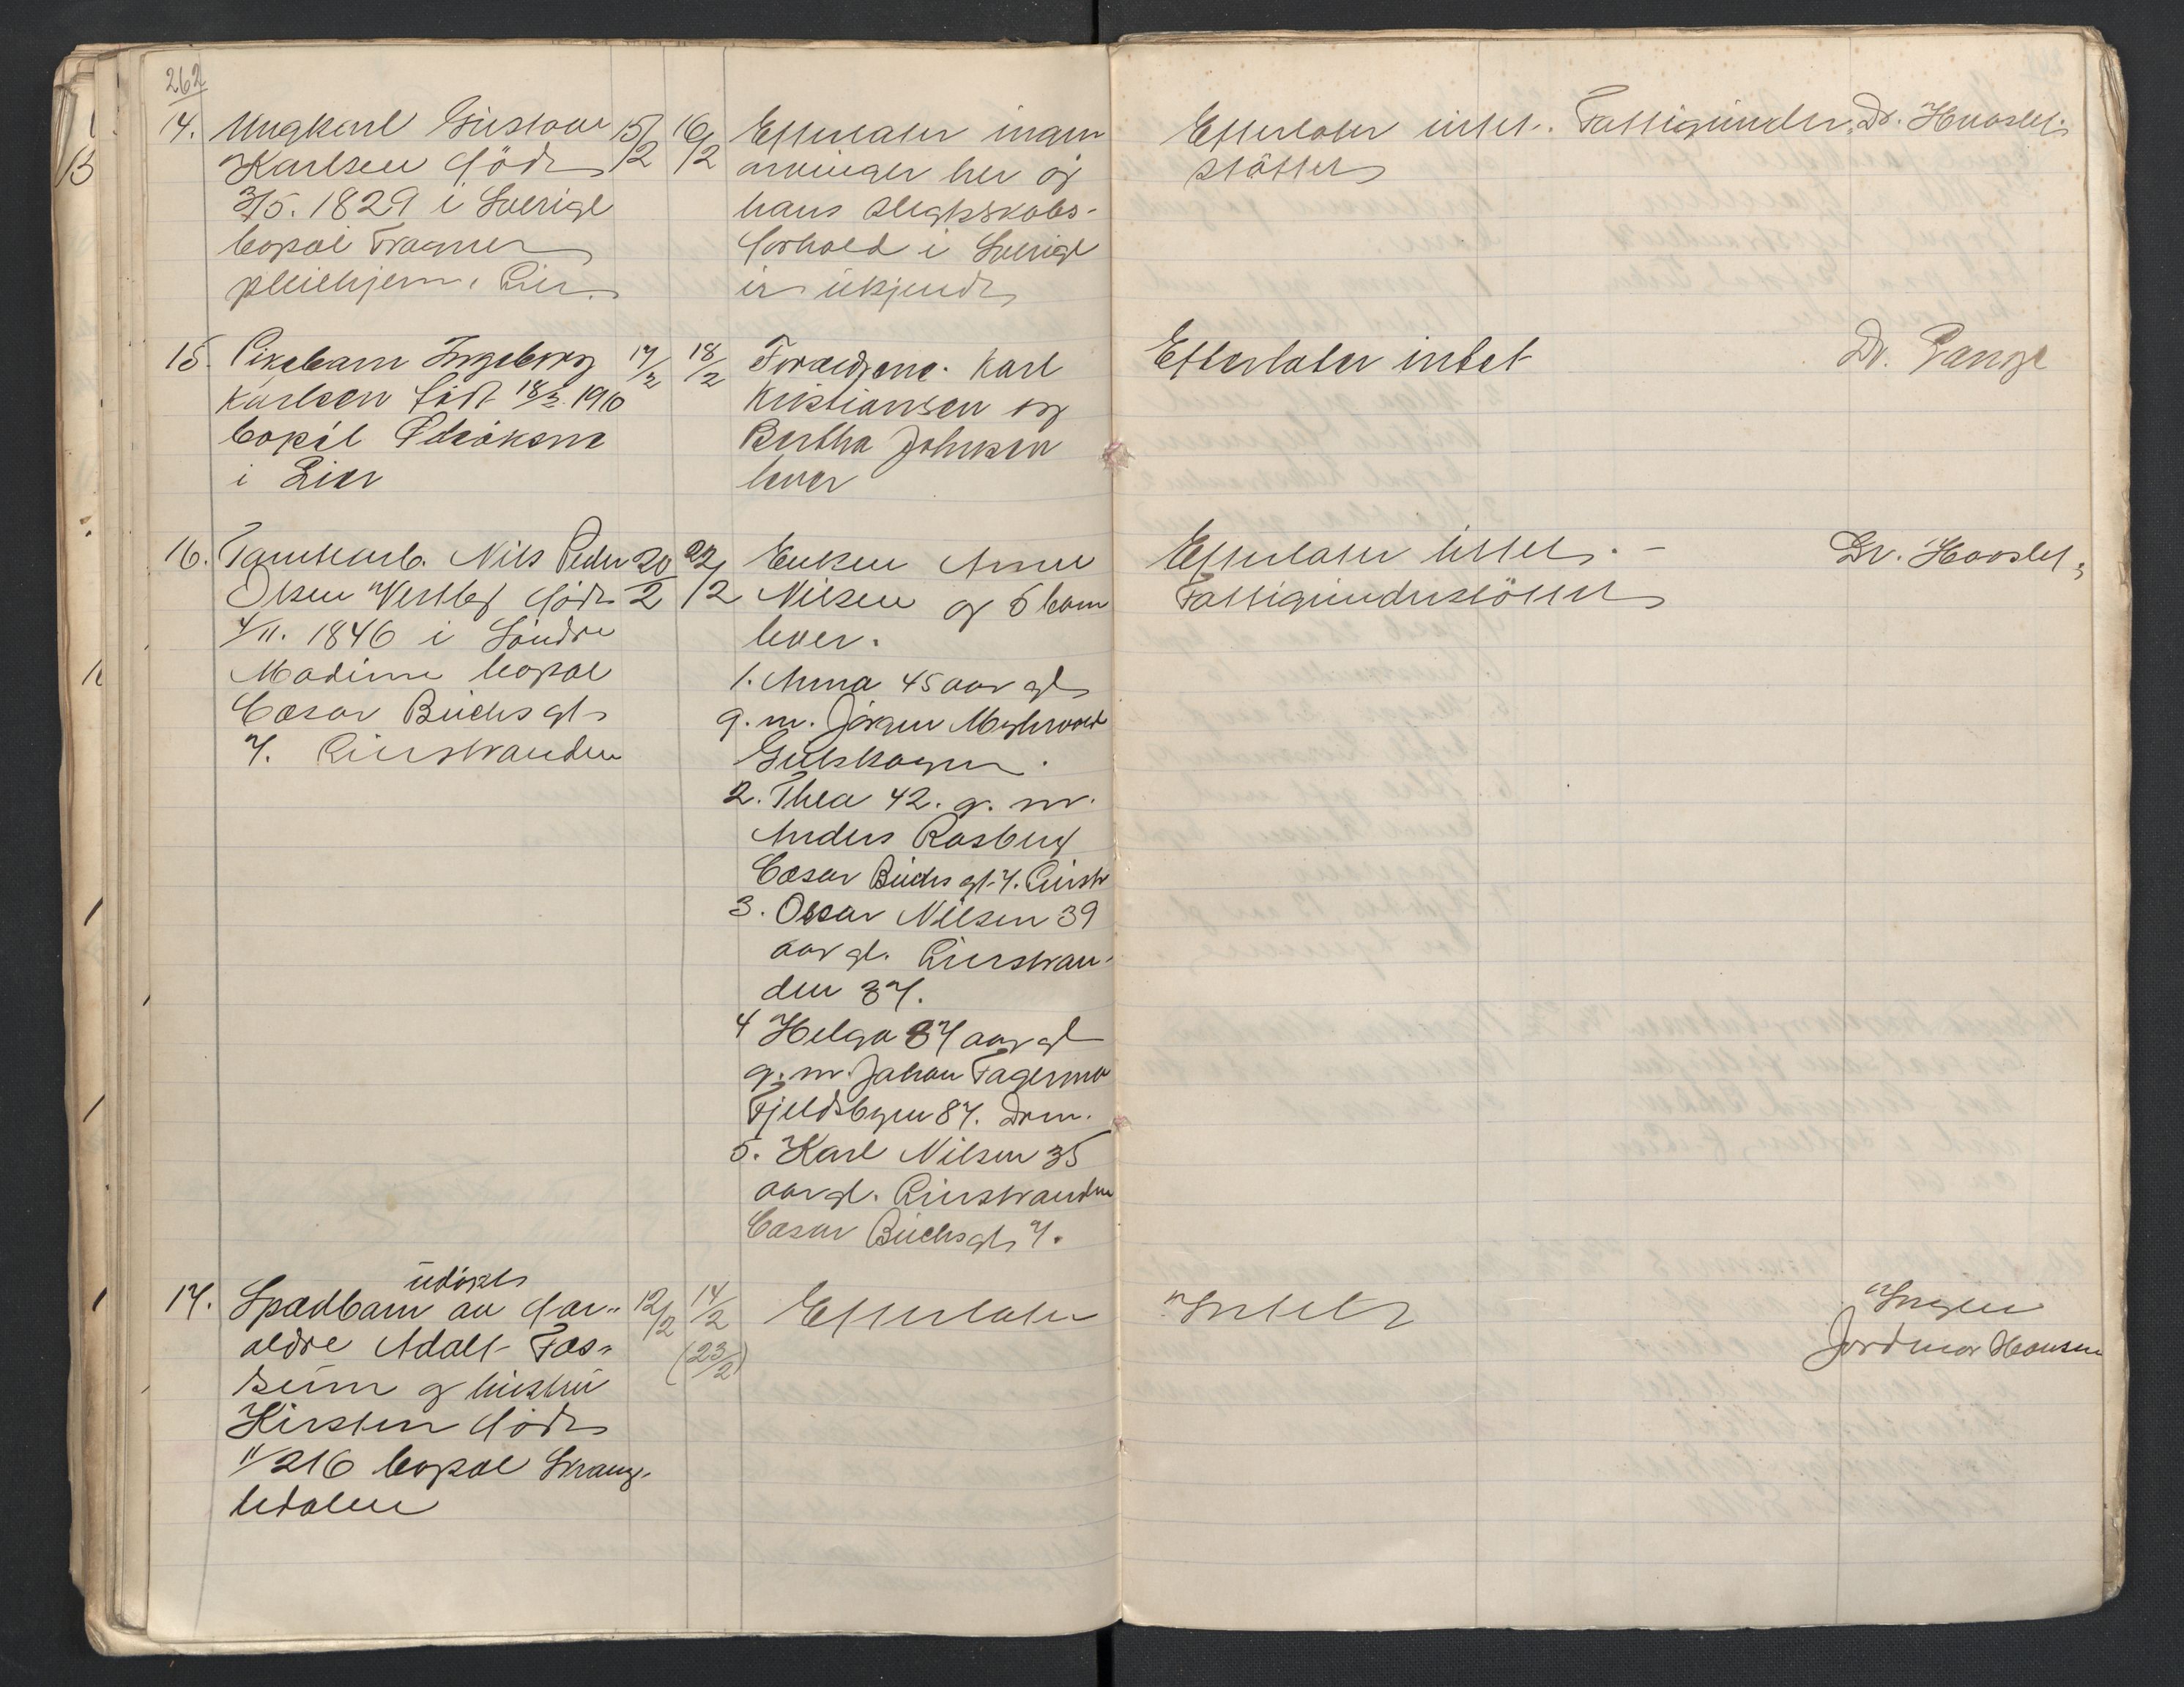 262
14. Ungkarl Gustave 15/2 16/2 Efterlater ingen Efterlater intet. Fattigunder- Dr. Haaslet.
Karlsen född arvinger her og støttet
3/5. 1829 i Sverige hans slegtskabs-
bopæl Fragner forhold i Sverige
pleiehjem, Lier. er ukjendt
15. Pikebarn Ingeborg 17/2 18/2 Foreldrene. Karl Efterlater intet Dr. Gange
Karlsen født 18/2. 1910 Kristiansen og
bopæl Bertha Johnsen
i Lier lever
16. Nils Peder 20/2 22/2 Enken Anne Efterlater intet. – Dr. Haaslet,
Olsen Vestby född Nilsen og 5 barn Fattigunderstöttet
4/11. 1846 i Söndre lever.
Modum bopæl 1. Anna 45 aar gl
Cæsar Buchs gt g. m. Jörgen
7. Lierstranden Gulskogen.
2. Thea 42. g. m.
Anders Rosberg
Cæsar Buchs gt. 7. Lierstr
3. Oscar Nilsen 39
aar gl. Lierstran-
den 37.
4 Helga 37 aar gl
g. m. Johan Fagermo
Fjeldsbyen 87. Drm.
5. Karl Nilsen 35
aar gl. Lierstranden
Cæsar Buchs gt 7.
udöpt
17. Spædbarn av for- 12/2 14/2 Efterlater Intet Ingen
ældre Adolf Fos- (23/2) Jordmor Hansen
sum og hustru
Kirsten född
11/2 16 bopæl